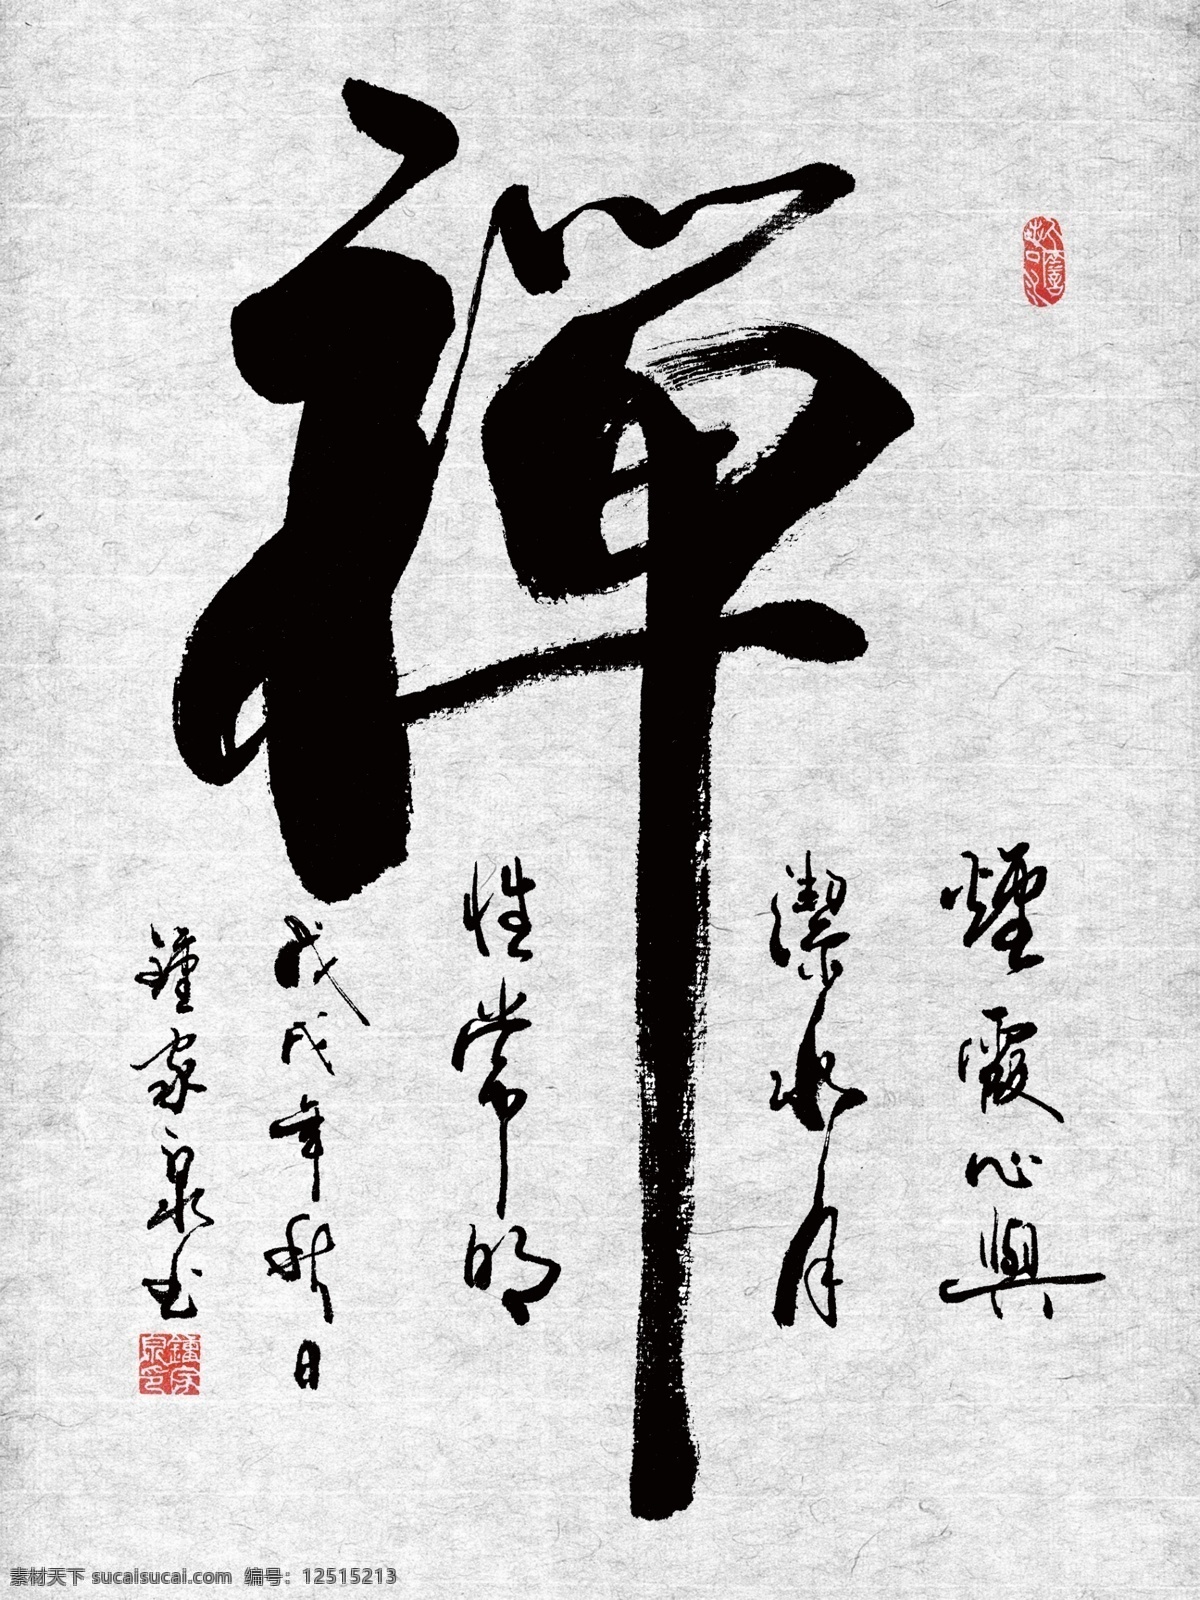 禪
煙霞心興
潔水月
性常明
戊戌年秋日
鍾家泉书
鍾家泉印
素材天下 sucaisucai.com 编号：12515213